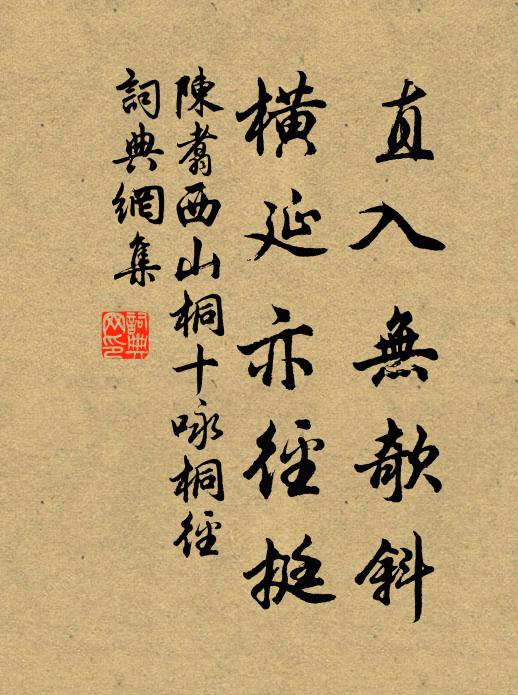 直入無欹斜
橫延亦徑挺
陳翥西山桐十咏桐徑
詞典網集
詞典網印